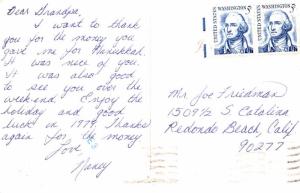 Dear Grandpa,
I want to thank
you for the money you
gave me for Hannukah.
It was nice of you.
It was also good
to see you over the
weekend. Enjoy the
holiday and good
luck in 1979. Thanks
again for the money
Love
Nancy
WASHINGTON 5c
WASHINGTON 5c
Mr Joe Friedman
1509½ S. Catalina
Redondo Beach, Calif
90277